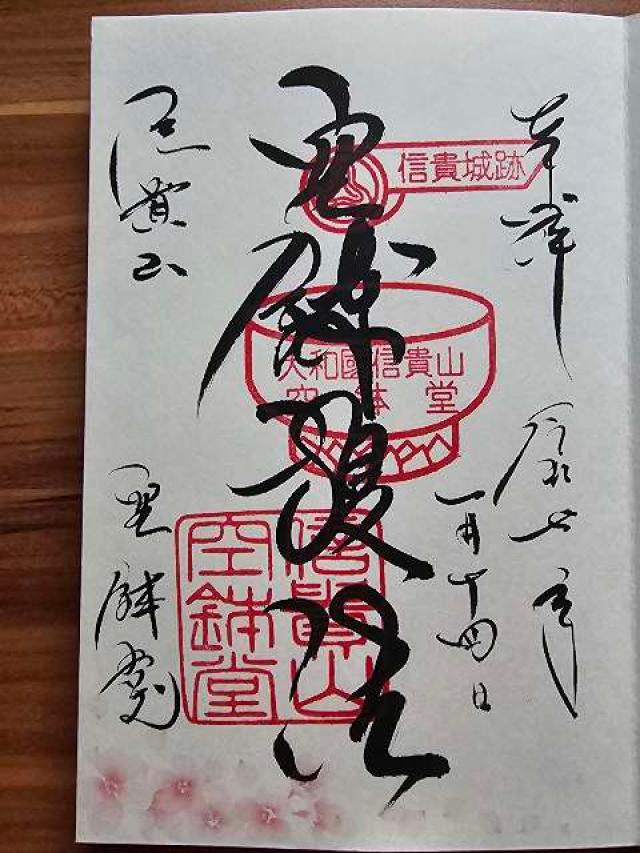 奉拝
令和七年
一月十四日
信貴城跡
空鉢護法
大和國信貴山
空鉢堂
信貴山
空鉢堂
信貴山
空鉢堂